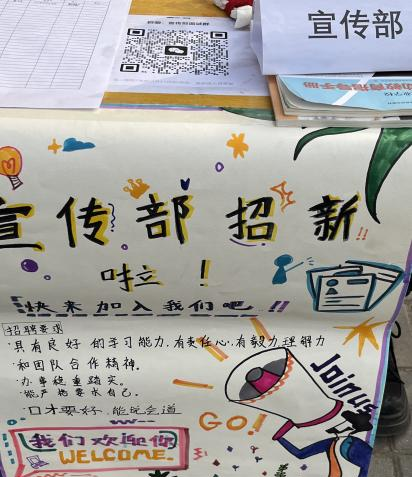 宣传部
宣传部招新
啦！
快来加入我们吧！!
招聘要求
·具有良好的学习能力，有责任心，有毅力理解力
·和团队合作精神.
·办事稳重踏实.
·能严格要求自己.
·口才要好，能说会道
GO!
Join us
我们欢迎你
WELCOME.